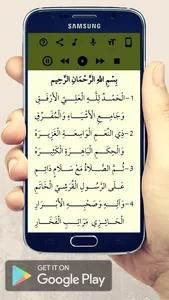 SAMSUNG
بِسْمِ اللهِ الرَّحْمَانِ الرَّحِيمِ
1- الْحَمْدُ لِلَّهِ الْعَلِيِّ الْأَرْفَقِ
وَجَامِعِ الْأَشْيَاءِ وَالْمُفَرِّقِ
2- ذِي النِّعَمِ الْوَاسِعَةِ الْغَزِيرَهْ
وَالْحِكَمِ الْبَاهِرَةِ الْكَثِيرَهْ
3- ثُمَّ الصَّلَاةُ مَعَ سَلَامٍ دَائِمِ
عَلَى الرَّسُولِ الْقُرَشِيِّ الْخَاتِمِ
4- وَآلِهِ وَصَحْبِهِ الْأَبْرَارِ
الْحَائِزِي مَرَاتِبَ الْفَخَارِ
GET IT ON
Google Play